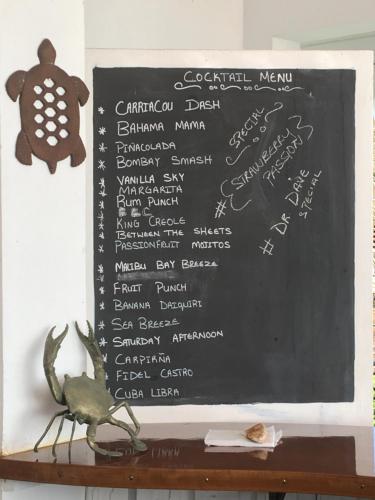 COCKTAIL MENU
* CARRIACOU DASH
* BAHAMA MAMA
* PIÑACOLADA
* BOMBAY SMASH
* VANILLA SKY
* MARGARITA
* RUM PUNCH
* KING CREOLE
* BETWEEN THE SHEETS
* PASSIONFRUIT MOJITOS
* MALIBU BAY BREEZE
* FRUIT PUNCH
* BANANA DAIQUIRI
* SEA BREEZE
* SATURDAY AFTERNOON
* CARPIRÑA
* FIDEL CASTRO
* CUBA LIBRA
SPECIAL
# STRAWBERRY
PASSION
# DR DAVE
SPECIAL